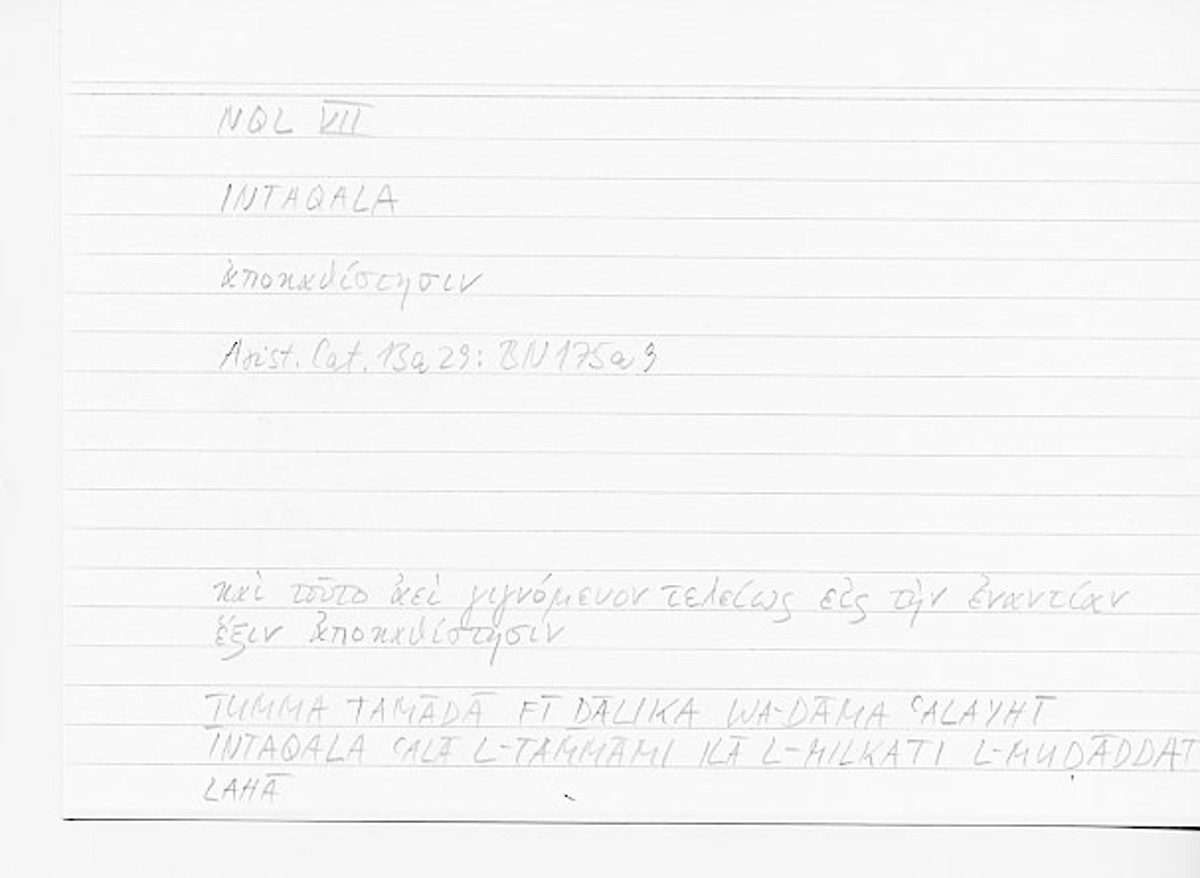 NQL VII
INTAQALA
ἀποκαθίστησιν
Arist. Cat. 13a 29: BN 175a 9
καὶ τοῦτο ἀεὶ γιγνόμενον τελείως εἰς τὴν ἐναντίαν
ἕξιν ἀποκαθίστησιν
T̄UMMA TAMĀDĀ FĪ D̄ĀLIKA WA-DĀMA ʿALAYHI
INTAQALA ʿALĀ L-TAMMĀMI ILĀ L-MILKATI L-MUḌĀDDAT
LAHĀ